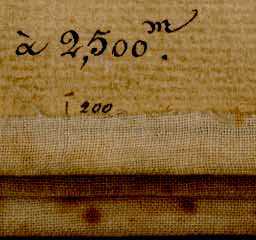 à 2,500ᵐ.
1 200